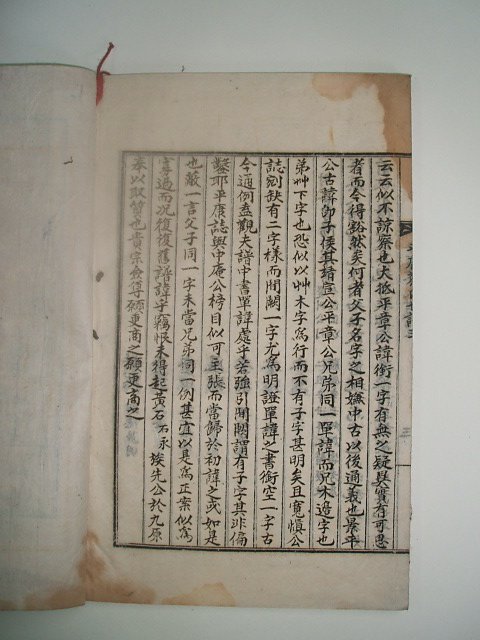 云云似不諒察也大抵平章公諱衔一字有無之疑與實有可思
者而今得豁然矣何者父子名字之相嫌中古以後通義也景平
公古諱卽子侯其靖宣公平章公兄弟同一單諱而只木邉字也
弟艸下字也恐似以艸木字爲行而不有子字甚明矣且寬愼公
誌刻缺有二字様而閒闕一字尤爲明證單諱之書衔空一字古
今通例盍觀夫譜中書單諱處乎若強引閒闕謂有子字其非偏
鑿耶平度誌與中庵公榜目似可主張而當歸於初諱之或如是
也蔽一言父子同一字未當兄弟同一例甚宜以是爲正案似爲
寡過而况復復舊譜諱乎竊恨未得起黃石石永埃先公於九原
奉以取質也貴宗僉尊願更商之願更商之